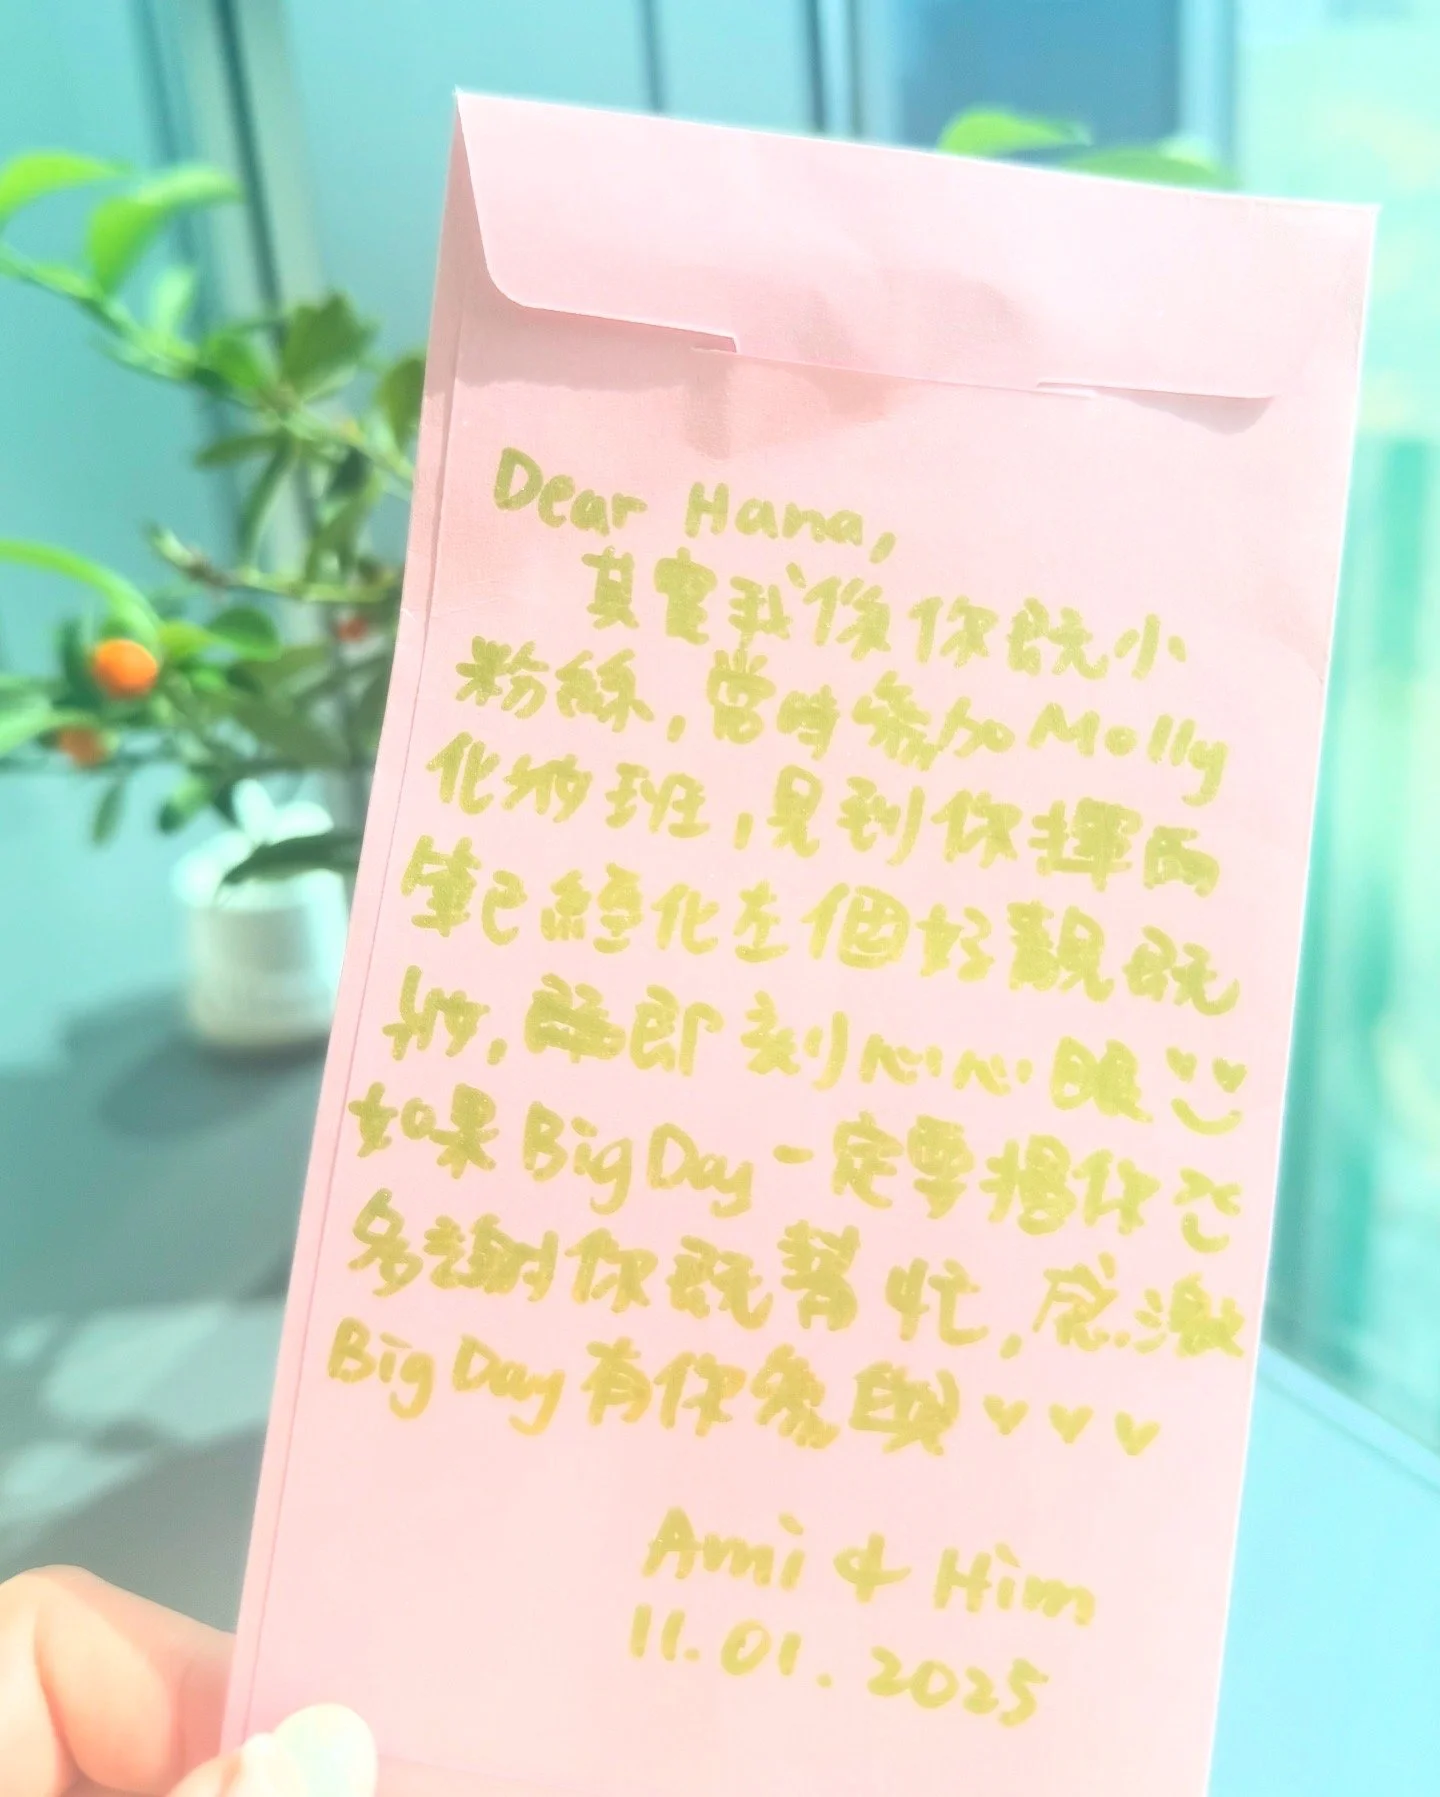 Dear Hana,
其實我係你既小
粉絲，當時參加Molly
化妝班，見到你揮兩
筆已經化左個好靚既
妝，即刻心心心眼
如果Big Day一定要搵你
多謝你既幫忙，感激
Big Day有你參與♥♥♥
Ami & Him
11.01.2025